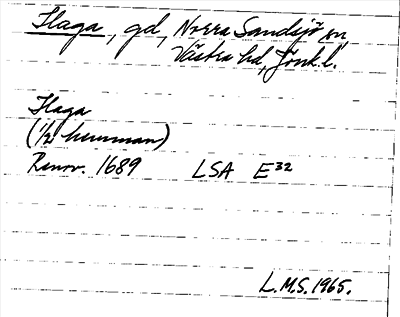 Haga, gd, Norra Sandsjö sn
Västra hd, Jönk.l.
Haga
(1/2 hemman)
Renov. 1689 LSA E32
L.M.S. 1965.